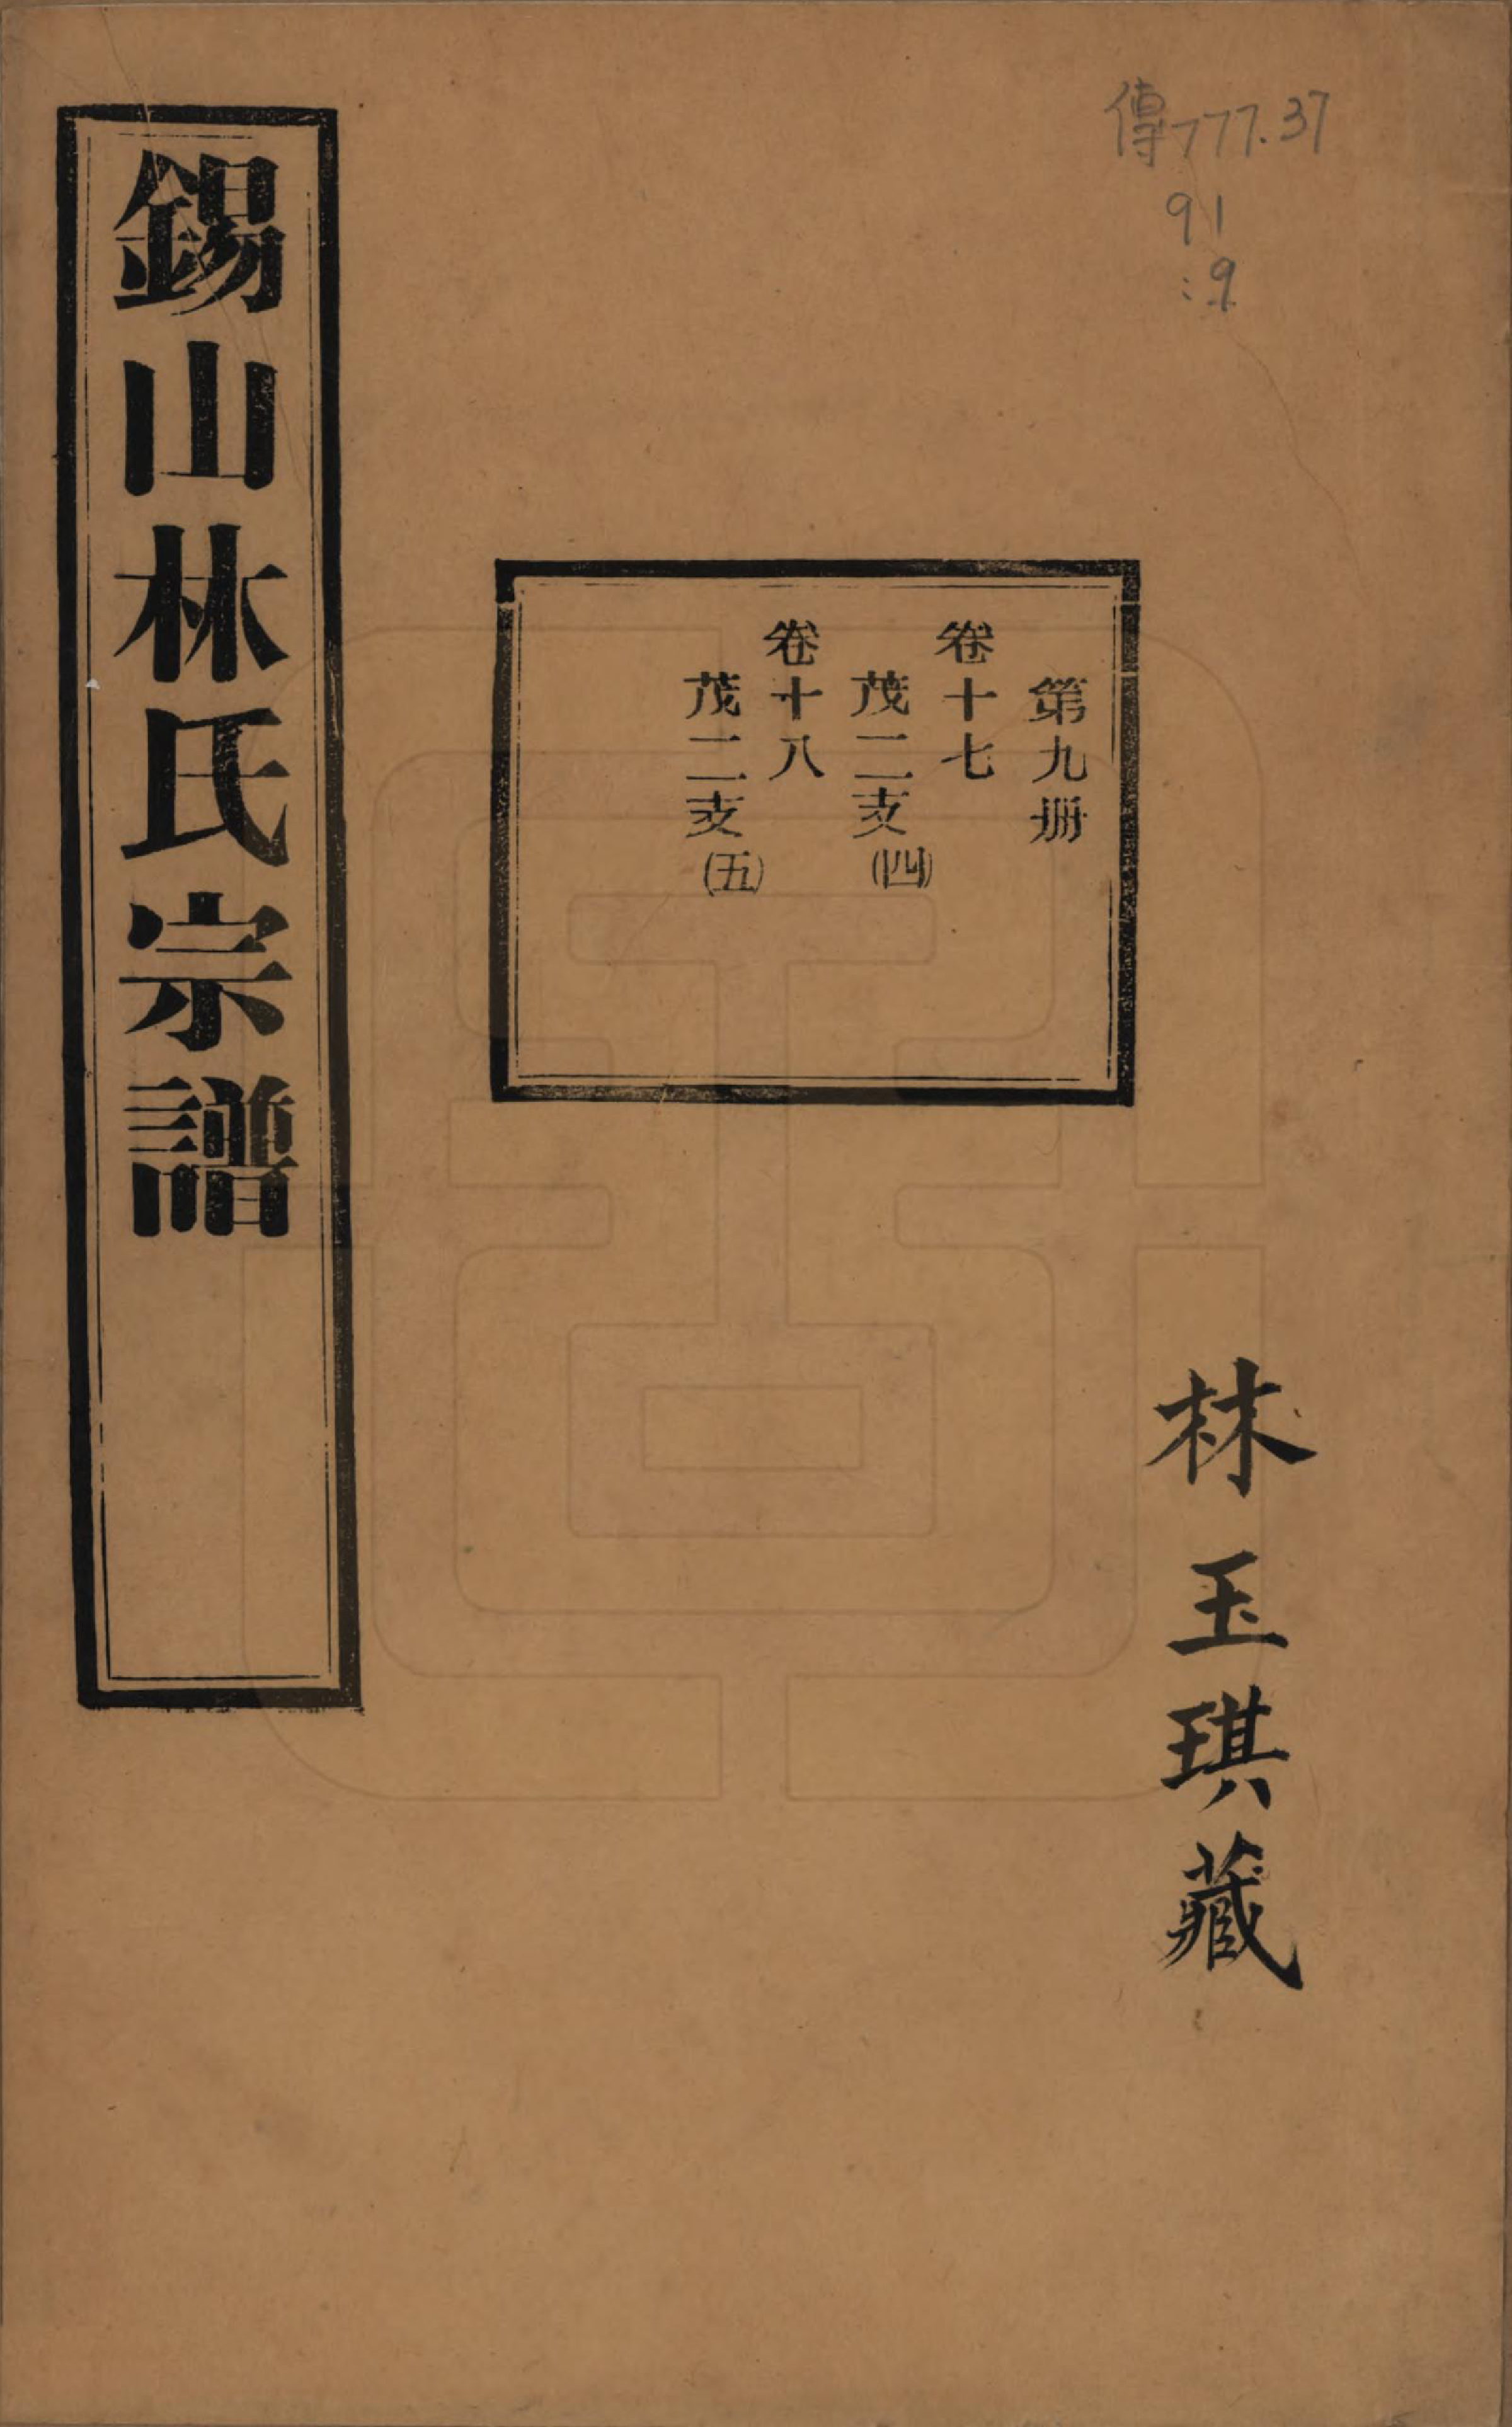 傳777.37
91
:9
第九册
卷十七
茂二支(四)
卷十八
茂二支(五)
錫山林氏宗譜
林玉琪藏